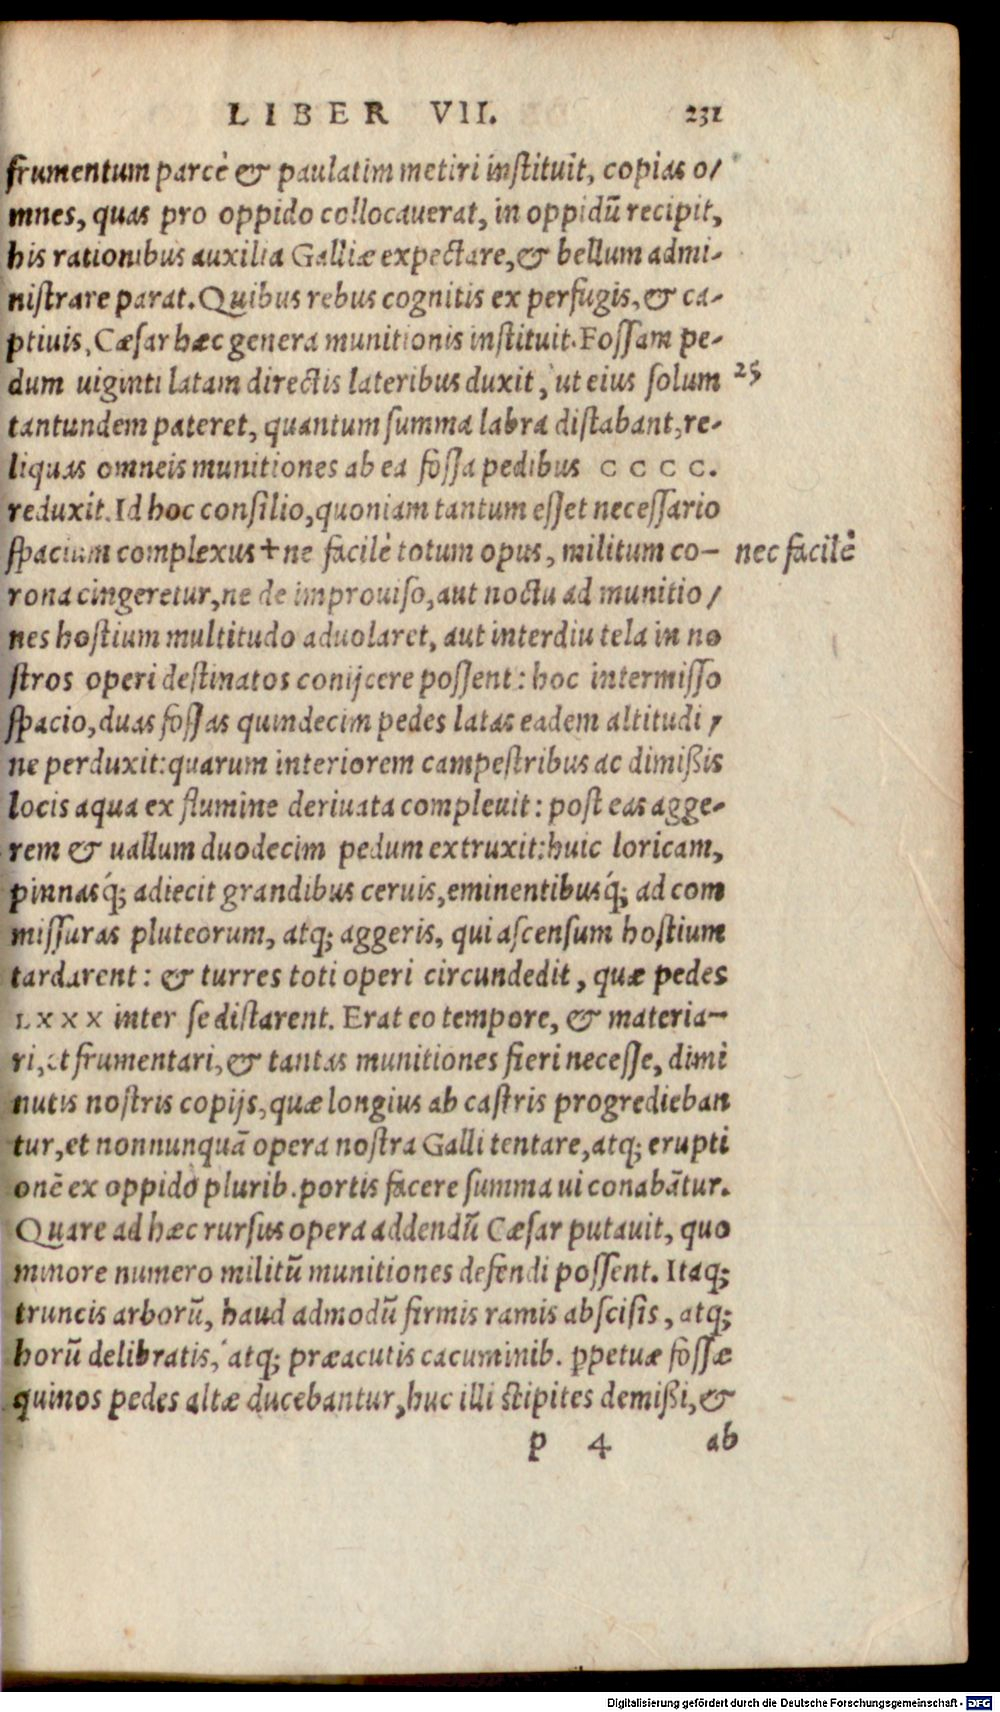 LIBER VII. 231
frumentum parcè & paulatim metiri inſtituit, copias o/
mnes, quas pro oppido collocauerat, in oppidū recipit,
his rationibus auxilia Galliæ expectare, & bellum admi-
niſtrare parat. Quibus rebus cognitis ex perfugis, & ca-
ptiuis, Cæſar hæc genera munitionis inſtituit. Foſſam pe-
dum uiginti latam directis lateribus duxit, ut eius ſolum 25
tantundem pateret, quantum ſumma labra diſtabant, re-
liquas omneis munitiones ab ea foſſa pedibus CCCC.
reduxit. Id hoc conſilio, quoniam tantum eſſet neceſſario
ſpacium complexus + ne facilè totum opus, militum co- nec facilè
rona cingeretur, ne de improuiſo, aut noctu ad munitio/
nes hoſtium multitudo aduolaret, aut interdiu tela in no
ſtros operi deſtinatos conijcere poſſent: hoc intermiſſo
ſpacio, duas foſſas quindecim pedes latas eadem altitudi/
ne perduxit: quarum interiorem campeſtribus ac dimißis
locis aqua ex flumine deriuata compleuit: poſt eas agge-
rem & uallum duodecim pedum extruxit: huic loricam,
pinnasq́; adiecit grandibus ceruis, eminentibusq́; ad com
miſſuras pluteorum, atq; aggeris, qui aſcenſum hoſtium
tardarent: & turres toti operi circundedit, quæ pedes
LXXX inter ſe diſtarent. Erat eo tempore, & materia-
ri, et frumentari, & tantas munitiones fieri neceſſe, dimi
nutis noſtris copijs, quæ longius ab caſtris progredieban
tur, et nonnunquā opera noſtra Galli tentare, atq; erupti
onē ex oppido plurib. portis facere ſumma ui conabātur.
Quare ad hæc rurſus opera addendū Cæſar putauit, quo
minore numero militū munitiones defendi poſſent. Itaq;
truncis arborū, haud admodū firmis ramis abſciſis, atq;
horū delibratis, atq; præacutis cacuminib. ꝑpetuæ foſſæ
quinos pedes altæ ducebantur, huc illi ſtipites demißi, &
p 4 ab
Digitalisierung gefördert durch die Deutsche Forschungsgemeinschaft - DFG